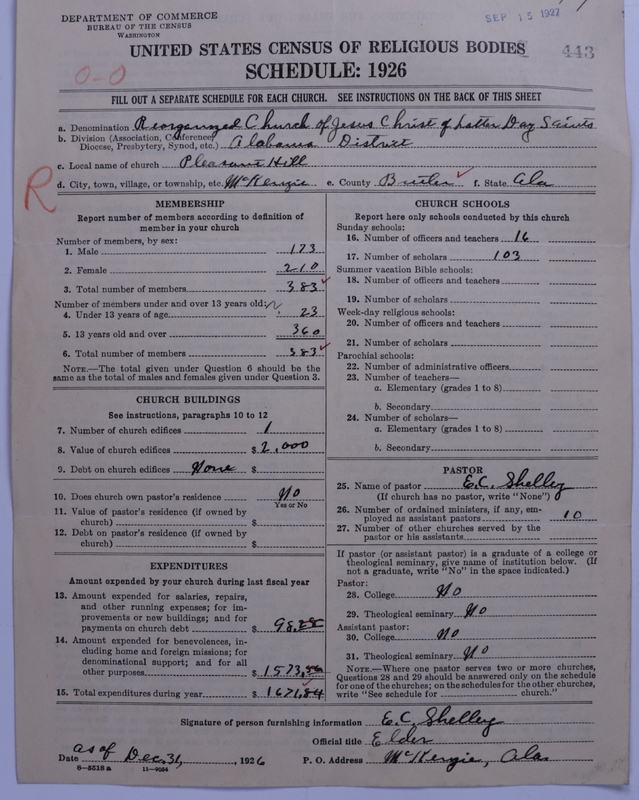 DEPARTMENT OF COMMERCE
BUREAU OF THE CENSUS
WASHINGTON
SEP 15 1927
UNITED STATES CENSUS OF RELIGIOUS BODIES
443
SCHEDULE: 1926
0-0
FILL OUT A SEPARATE SCHEDULE FOR EACH CHURCH. SEE INSTRUCTIONS ON THE BACK OF THIS SHEET
a. Denomination Reorganized Church of Jesus Christ of Latter Day Saints
b. Division (Association, Conference, Diocese, Presbytery, Synod, etc.) Alabama District
c. Local name of church Pleasant Hill
R
d. City, town, village, or township, etc. McKenzie e. County Butler f. State Ala
MEMBERSHIP
Report number of members according to definition of
member in your church
Number of members, by sex:
1. Male 173
2. Female 210
3. Total number of members 383
Number of members under and over 13 years old:
4. Under 13 years of age 23
5. 13 years old and over 360
6. Total number of members 383
NOTE.—The total given under Question 6 should be
same as the total of males and females given under Question 3.
CHURCH BUILDINGS
See instructions, paragraphs 10 to 12
7. Number of church edifices 1
8. Value of church edifices $ 2,000
9. Debt on church edifices None $
10. Does church own pastor's residence No
Yes or No
11. Value of pastor's residence (if owned by
church) $
12. Debt on pastor's residence (if owned by
church) $
EXPENDITURES
Amount expended by your church during last fiscal year
13. Amount expended for salaries, repairs,
and other running expenses; for im-
provements or new buildings; and for
payments on church debt $ 98.28
14. Amount expended for benevolences, in-
cluding home and foreign missions; for
denominational support; and for all
other purposes $ 1573.56
15. Total expenditures during year $ 1671.84
CHURCH SCHOOLS
Report here only schools conducted by this church
Sunday schools:
16. Number of officers and teachers 16
17. Number of scholars 103
Summer vacation Bible schools:
18. Number of officers and teachers
19. Number of scholars
Week-day religious schools:
20. Number of officers and teachers
21. Number of scholars
Parochial schools:
22. Number of administrative officers
23. Number of teachers—
a. Elementary (grades 1 to 8)
b. Secondary
24. Number of scholars—
a. Elementary (grades 1 to 8)
b. Secondary
PASTOR
25. Name of pastor E.C. Shelley
(If church has no pastor, write "None")
26. Number of ordained ministers, if any, em-
ployed as assistant pastors 10
27. Number of other churches served by the
pastor or his assistants
If pastor (or assistant pastor) is a graduate of a college or
theological seminary, give name of institution below. (If
not a graduate, write "No" in the space indicated.)
Pastor:
28. College No
29. Theological seminary No
Assistant pastor:
30. College No
31. Theological seminary No
NOTE.—Where one pastor serves two or more churches,
Questions 28 and 29 should be answered only on the schedule
for one of the churches; on the schedules for the other churches,
write "See schedule for church."
Signature of person furnishing information E.C. Shelley
Official title Elder
Date as of Dec. 31, 1926 P. O. Address McKenzie, Ala.
6—5518a 11—9054